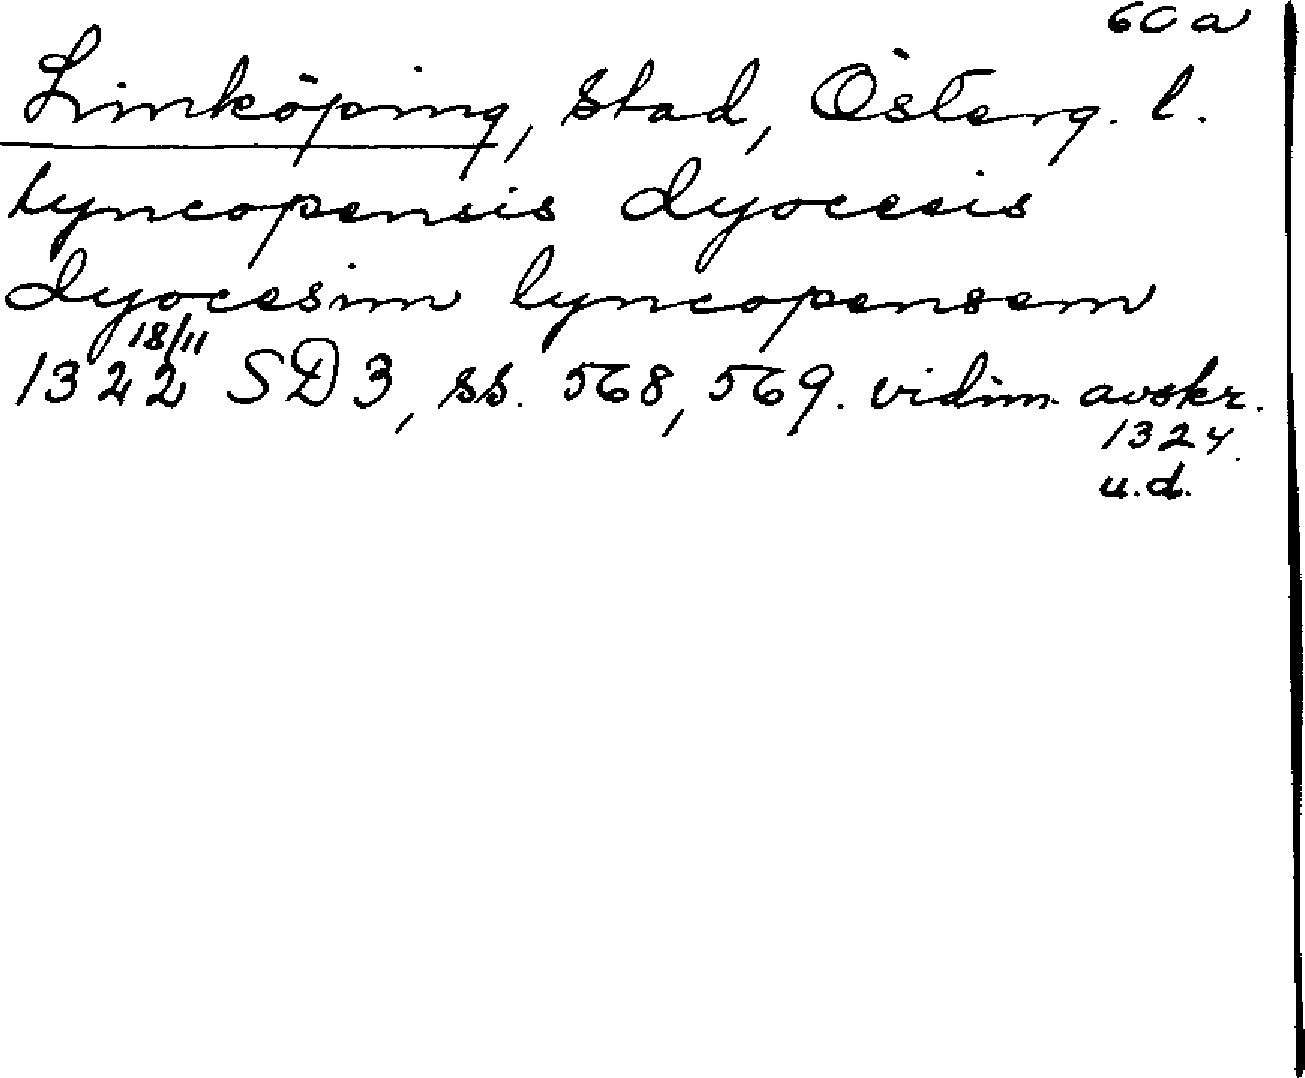 60a
Linköping, stad, Österg. l.
Lyncopensis dyocesis
dyocesim lyncopensem
1322 18/11 SD3, ss. 568, 569. vidim. avskr.
1324.
u.d.